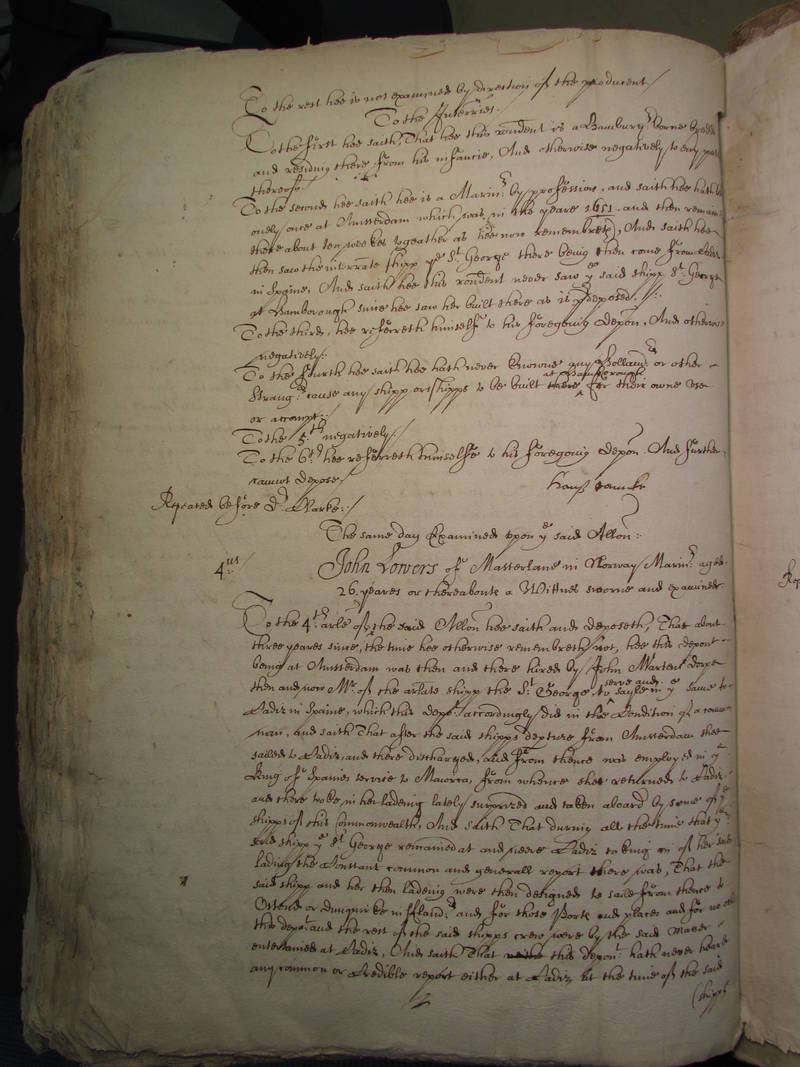 To the rest hee is not examined by direction of the producent /
To the Interries.
To the first hee saith, That hee this rondent is a Bamburg.^r borne
and residing there from his infancie, And otherwise negatively to every part
thereof. /
To the second hee saith hee is a Marin.^r by profession, and saith hee hath b
onely once at Amsterdam which was in the yeare 1651. and then remai
there about ten weekes togeather as hee now remembreth, And saith hee
then saw the interrate shipp y^e S^t. George there being then come from
in Spaine, And saith hee this rondent never saw y^e said shipp S^t. George
at Bamborough since hee saw her built there as is predeposed. /:
To the third, hee referreth himself to his foregoing depon, And otherwise
negatively /:
To the fourth hee saith hee hath never knowne any Holland.^rs or other
Strang.^rs cause any shipp or shipps to be built there at Bamborough for their owne use
or accompt. /:
To the 5.^th negatively /
To the 6.^th hee referreth himselfe to his foregoing depon. And further
cannot depose /
Hans
Repeated before D^r. Clarke. /:
The same day Examined upon y^e said Allon:
4^us /
John Lowers of Masterlane in Norway Marin.^r aged
26. yeares or thereabouts a Wittnes sworne and examined.
To the 4.^th arle of the said Allon hee saith and deposeth, That about
three yeares since, the time hee otherwise remembreth not, hee this depont
being at Amsterdam was then and there hired by John Marten
then and now M^r. of the arlate shipp the S^t. George, to serve and sayle in y^e same to
Cadiz in Spaine, which this depo.^t accordingly did in the Condition of a comon
man, and saith That after the said shipps depture from Amsterdam shee
sailed to Cadiz, and there discharged, and from thence was employed in y^e
King of Spaines service to Maiorca, from whence shee returned to Cadiz
and there tooke in her ladeing lately surprized and taken aboard by some of y^e
shipps of this Commonwealth, And saith That during all the time that y^e
said shipp y^e S^t. George remained at and neere Cadiz taking in of her said
lading the Constant common and generall report there was, That the
said shipp and her then ladeing were then designed to saile from thence to
Ostend or Dunquirke in Fland.^rs and for those Ports and places and for no other
this depo.^t and the rest of the said shipps crew were by the said Master
entertained at Cadiz, And saith That this depon.^t hath never heard
any common or Credible report either at Cadiz at the time of the said
(shipps